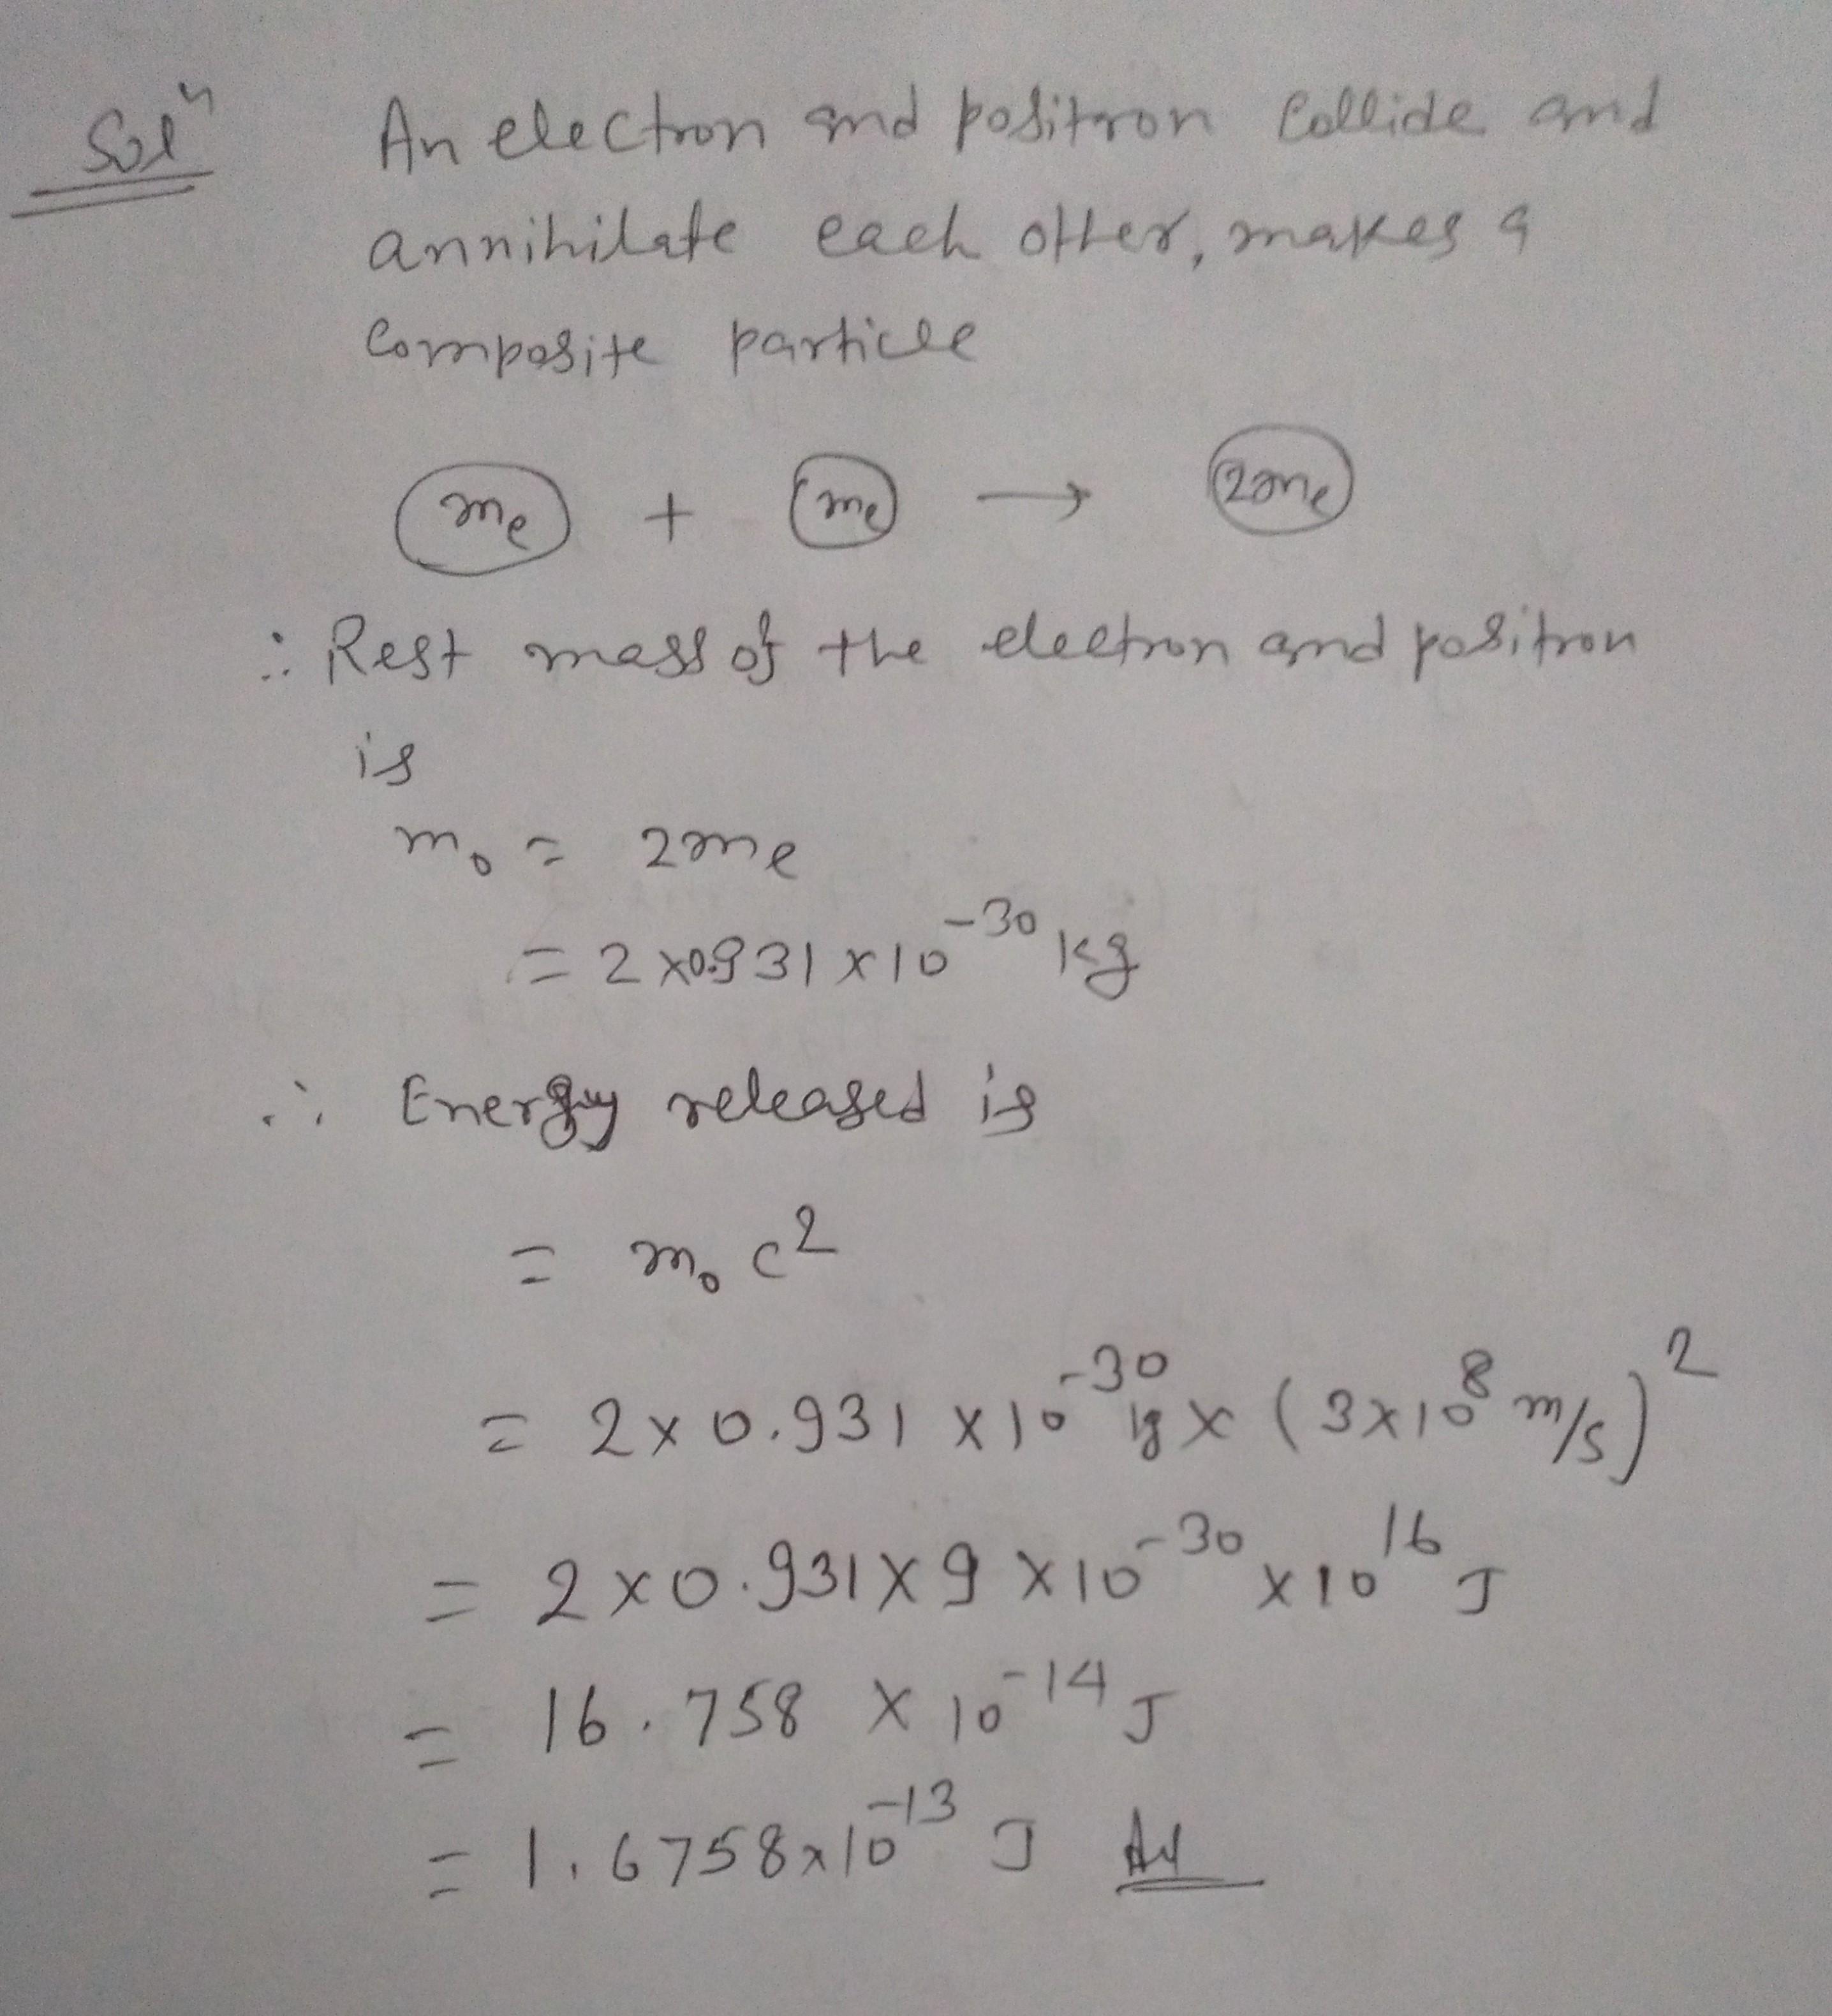 Solⁿ An electron and positron collide and
annihilate each other, makes a
composite particle
me + me → 2me
∴ Rest mass of the electron and positron
is
m₀ = 2me
= 2 x0.931 x 10⁻³⁰ kg
∴ Energy released is
= m₀ c²
= 2 x 0.931 x 10⁻³⁰ kg x (3x10⁸ m/s)²
= 2 x 0.931 x 9 x 10⁻³⁰ x 10¹⁶ J
= 16.758 x 10⁻¹⁴ J
= 1.6758 x 10⁻¹³ J